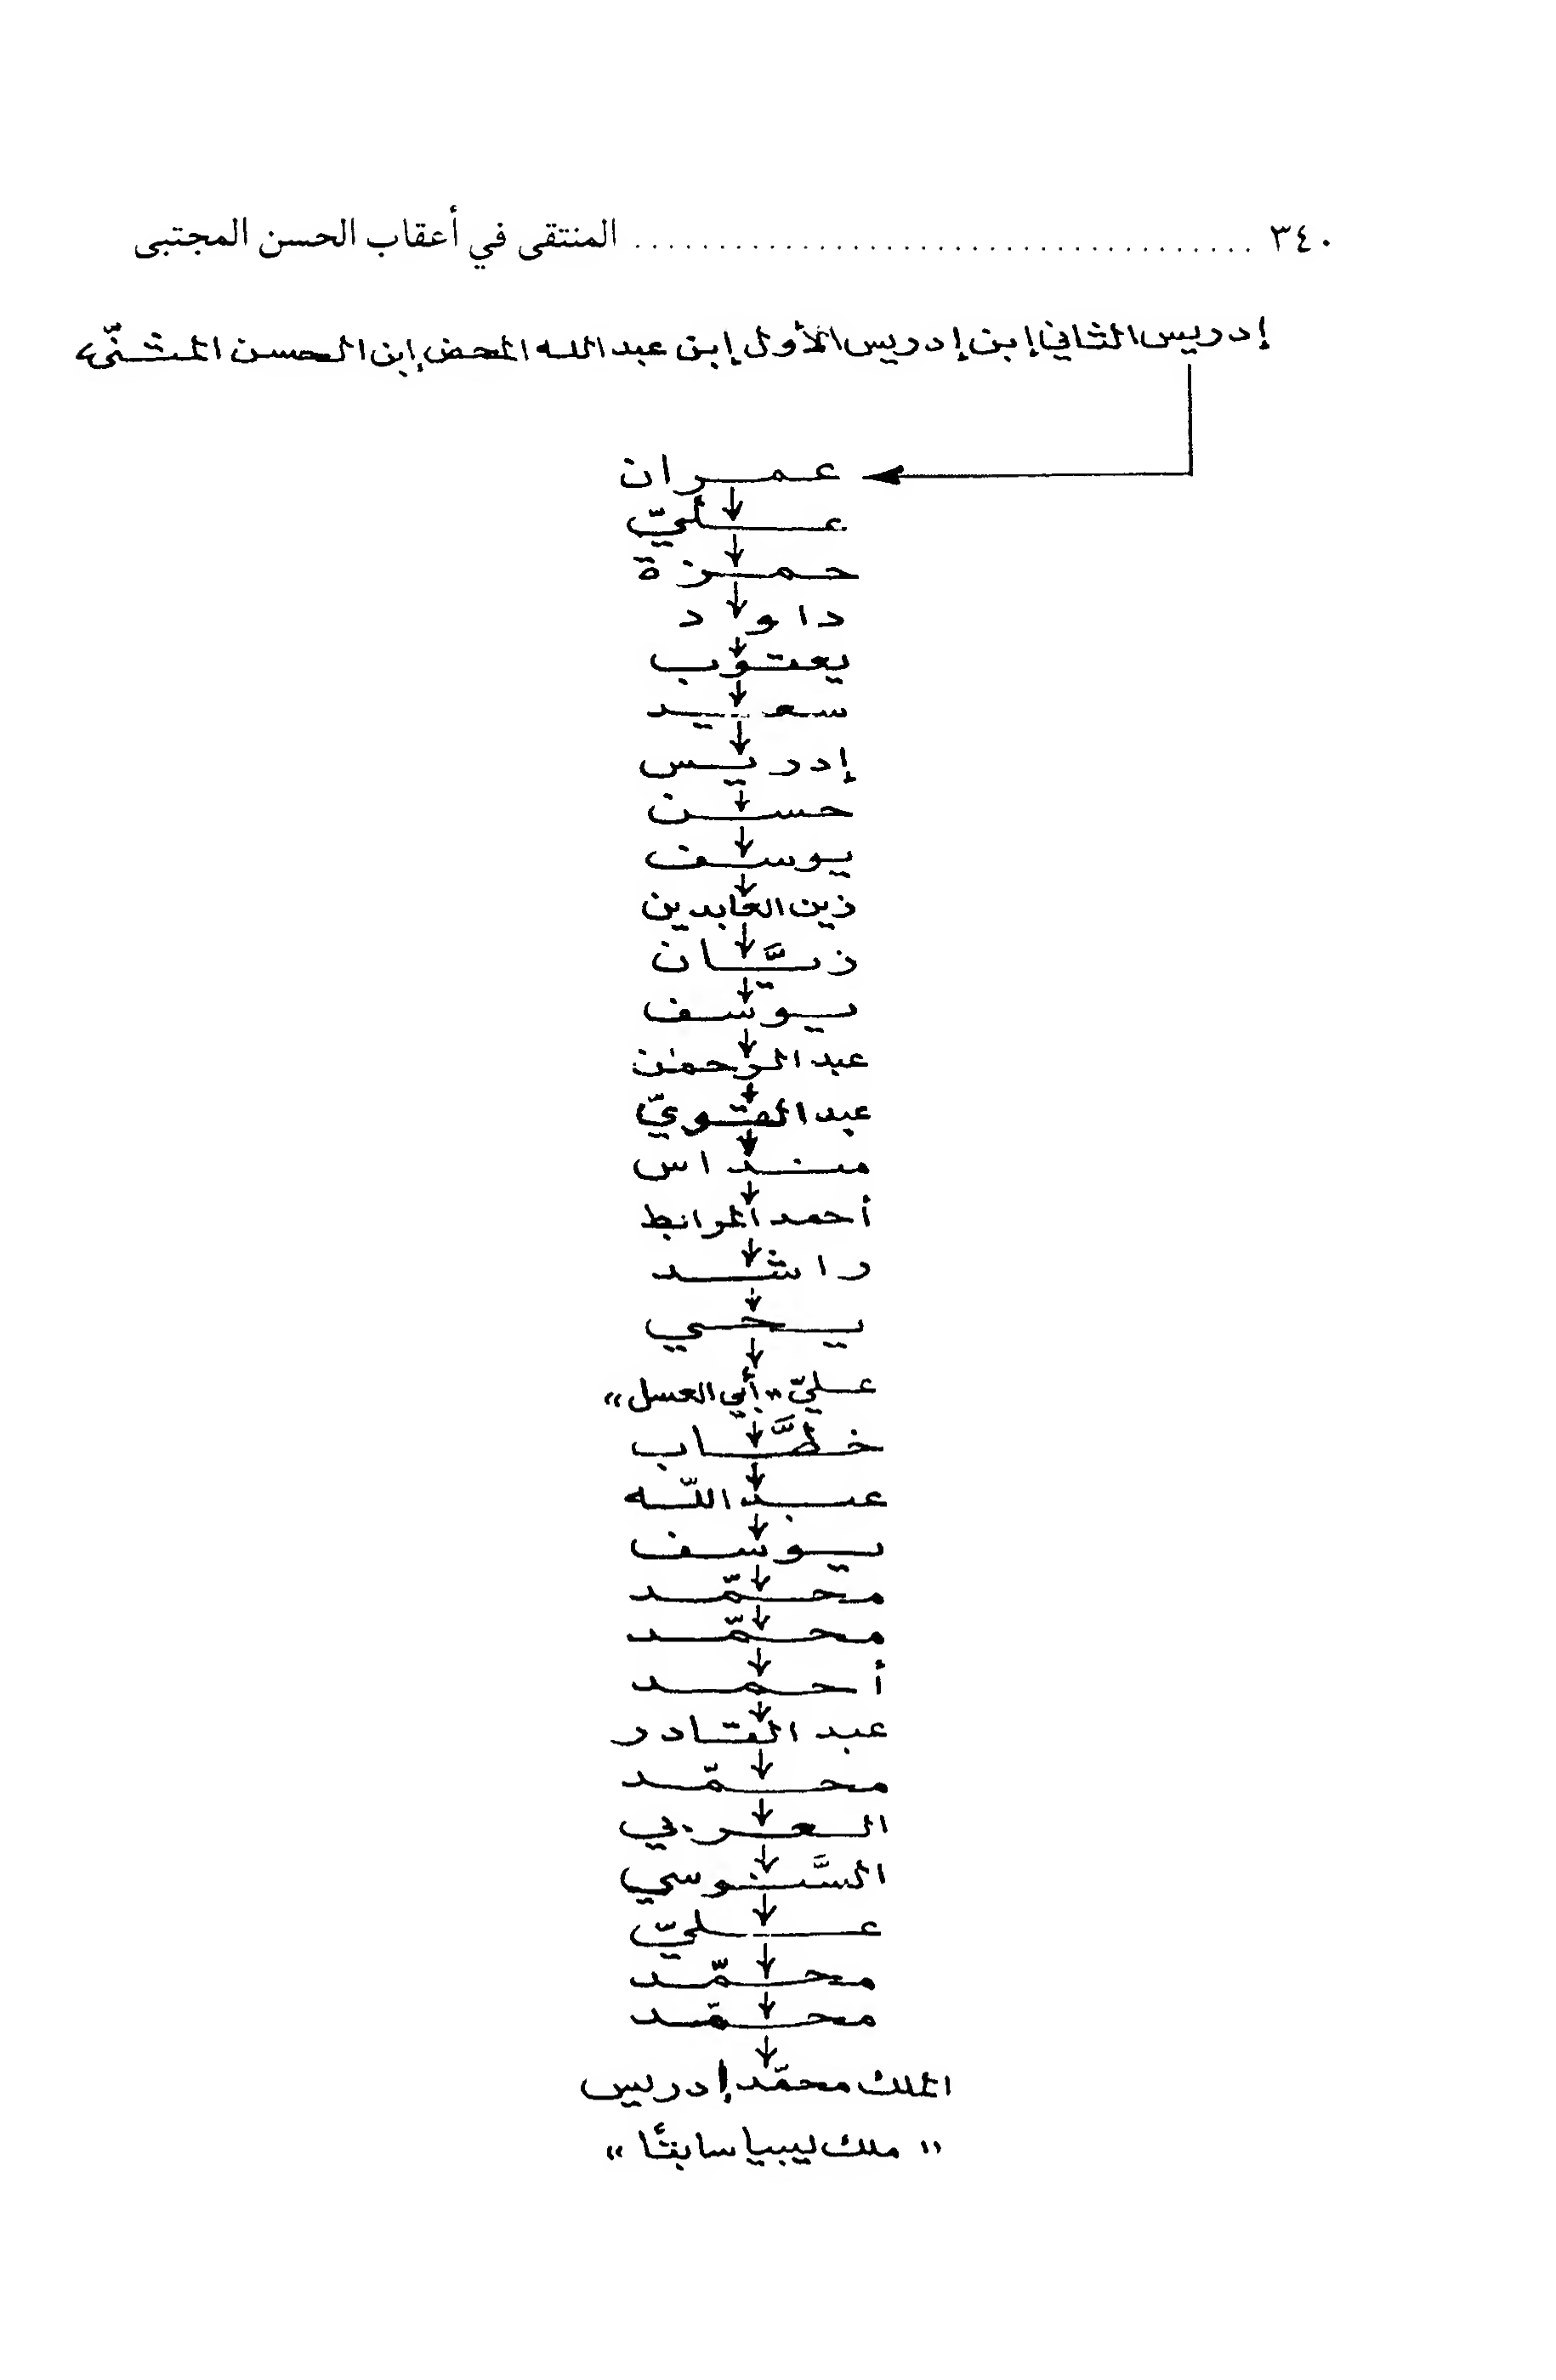 ٣٤٠ ...................................... المنتقى في أعقاب الحسن المجتبى
إدريس الثاني إبن إدريس الأول إبن عبد الله المحض إبن الحسن المثنّى
عمران
عليّ
حمزة
داود
يعقوب
سعيد
إدريس
حسن
يوسف
زين العابدين
زيَّان
يوسف
عبد الرحمن
عبد القويّ
منداس
أحمد المرابط
راشد
يحي
عليّ «أبي العسل»
خطَّاب
عبد اللّه
يوسف
محمّد
محمّد
أحمد
عبد القادر
محمّد
العربي
السَّنوسي
عليّ
محمّد
محمّد
الملك محمّد إدريس
« ملك ليبيا سابقًا »